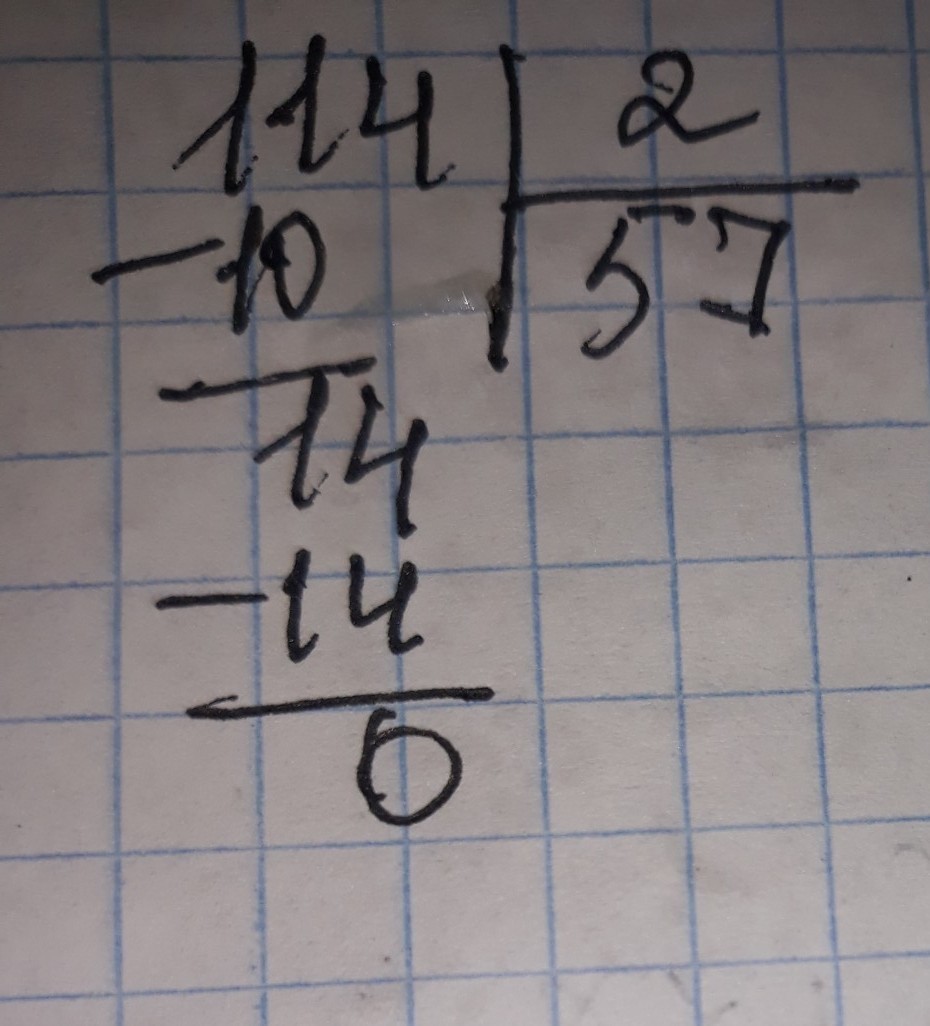 114 2
-10 57
14
-14
0